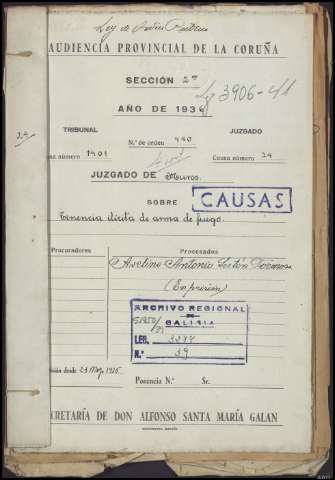 Ley de Orden Público
AUDIENCIA PROVINCIAL DE LA CORUÑA
SECCIÓN 2ª
3906-41
AÑO DE 1936
TRIBUNAL JUZGADO
N.º de orden 440
usa número 1901 Causa número 24
JUZGADO DE Muros.
SOBRE
CAUSAS
Tenencia ilícita de arma de fuego.
Procuradores Procesados
Avelino Antonio
(En prisión)
ARCHIVO REGIONAL
DE
GALICIA
LEG. 3277
N.º 39
desde 23 Mayo 1936
Ponencia N.º Sr.
CRETARÍA DE DON ALFONSO SANTA MARÍA GALAN